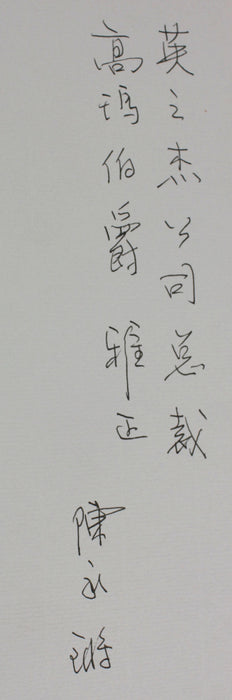 英之杰公司总裁
高瑪伯爵 雅正
陳永锵